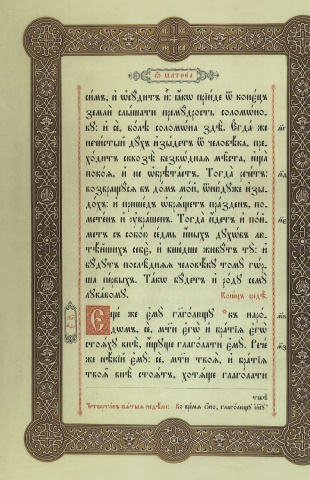 Ѿ МАТѲЕА
си́мъ, и҆ ѡ҆сꙋ́дитъ и҆̀: ꙗ҆́кѡ прїи́де ѿ конє́цъ
землѝ слы́шати премꙋ́дрость соломѡ́но-
вꙋ: и҆ сѐ, бо́лѣ соломѡ́на здѣ̀. Є҆гда́ же
нечи́стый дꙋ́хъ и҆зы́детъ ѿ человѣ́ка, пре-
хо́дитъ сквозѣ̀ безвѡ́дная мѣ̑ста, и҆щѧ̀
поко́я, и҆ не ѡ҆брѣта́етъ. Тогда̀ рече́тъ:
возвращꙋ́ся въ до́мъ мо́й, ѿню́дꙋже и҆зы-
до́хъ: и҆ прише́дъ ѡ҆брѧ́щетъ пра́зденъ, по-
мете́нъ и҆ ᲂу҆кра́шенъ. Тогда̀ и҆́детъ и҆ по́й-
метъ съ собо́ю се́дмь и҆ны́хъ дꙋхѡ́въ лю-
тѣ́йшихъ себє̀, и҆ вше́дше живꙋ́тъ тꙋ̀: и҆
бꙋ́дꙋтъ послѣ̑дняя человѣ́кꙋ томꙋ̀ гѡ́р-
ша пе́рвыхъ. Та́кѡ бꙋ́детъ и҆ ро́дꙋ семꙋ̀
лꙋка́вомꙋ. Коне́цъ средѣ̀.
Є҆ще́ же є҆мꙋ̀ глаго́лющꙋ къ наро́-
дѡмъ, сѐ, мт҃и є҆гѡ̀ и҆ бра́тїя є҆гѡ̀
стоѧ́хꙋ внѣ̀, и҆́щꙋще глаго́лати є҆мꙋ̀. Рече́
же нѣ́кїй є҆мꙋ̀: сѐ, мт҃и твоѧ̀, и҆ бра́тїя
твоѧ̑ внѣ̀ стоѧ́тъ, хотѧ́ще глаго́лати
тебѣ̀
Четверто́къ пѧ́тыя недѣ́ли: Во вре́мя ѻ҆́но, глаго́лющꙋ і҆и҃сꙋ